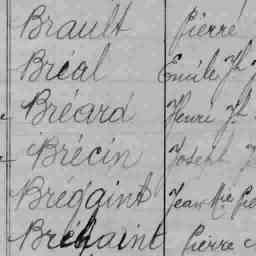 Brault Pierre
Bréal Emile Jh
Bréard Henri Jh
Brécin Joseph
Bréggint Jean Mie Pie
Bréhaint Pierre